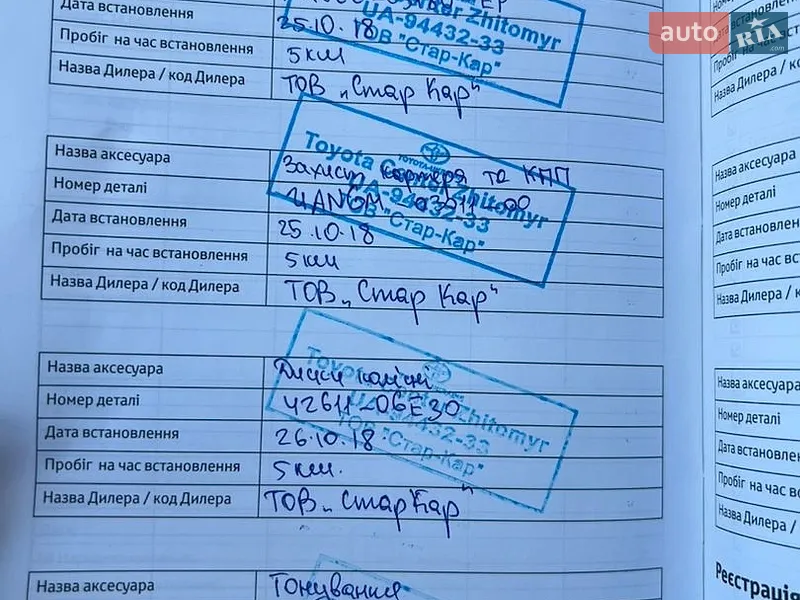 Дата встановлення 25.10.18
Пробіг на час встановлення 5 км
Назва Дилера / код Дилера ТОВ „Стар Кар"
Zhitomyr
UA-94432-33
ТОВ "Стар-Кар"
auto RIA .com
Назва аксесуара Захист картера та КПП
Номер деталі
Дата встановлення 25.10.18
Пробіг на час встановлення 5 км
Назва Дилера / код Дилера ТОВ „Стар Кар"
Toyota Center Zhitomyr
UA-94432-33
ТОВ "Стар-Кар"
Назва аксесуара Диски колісні
Номер деталі 42611-06E30
Дата встановлення 26.10.18
Пробіг на час встановлення 5 км.
Назва Дилера / код Дилера ТОВ „Стар Кар"
Toyota Center Zhitomyr
UA-94432-33
ТОВ "Стар-Кар"
Назва аксесуара Тонування
Пробіг на час вс
Назва Дилера /
Назва аксесуара
Номер деталі
Дата встановлен
Пробіг на час вс
Назва Дилера /
Назва аксесуара
Номер деталі
Дата встановлен
Пробіг на час вс
Назва Дилера /
Реєстрація